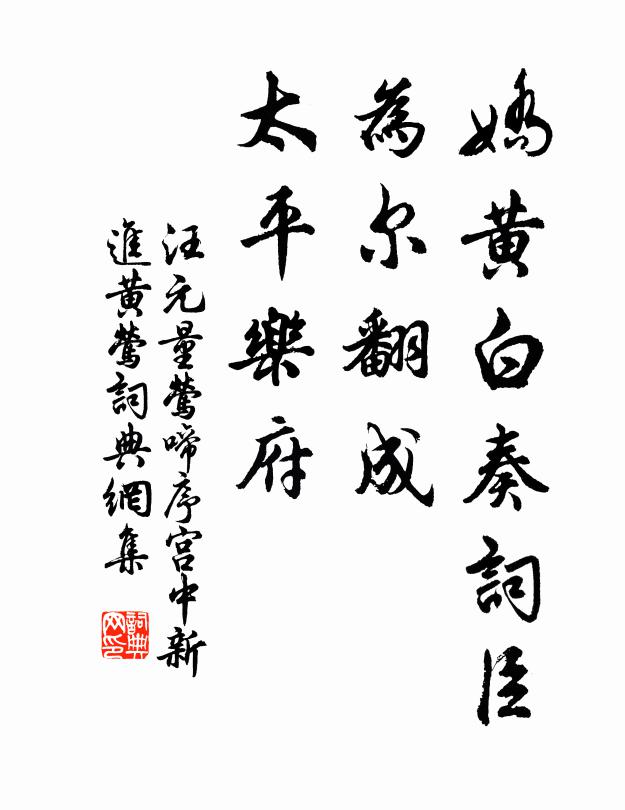 嬌黄白奏詞臣
為尔翻成
太平樂府
汪元量鶯啼序宫中新
進黄鶯詞典網集
詞典
网印